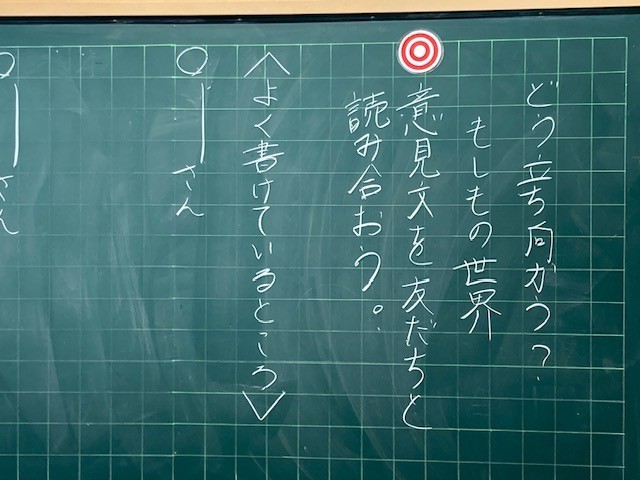 どう立ち向かう?
もしもの世界
意見文を友だちと
読み合おう。
〈よく書けているところ〉
○ さん
○ さん